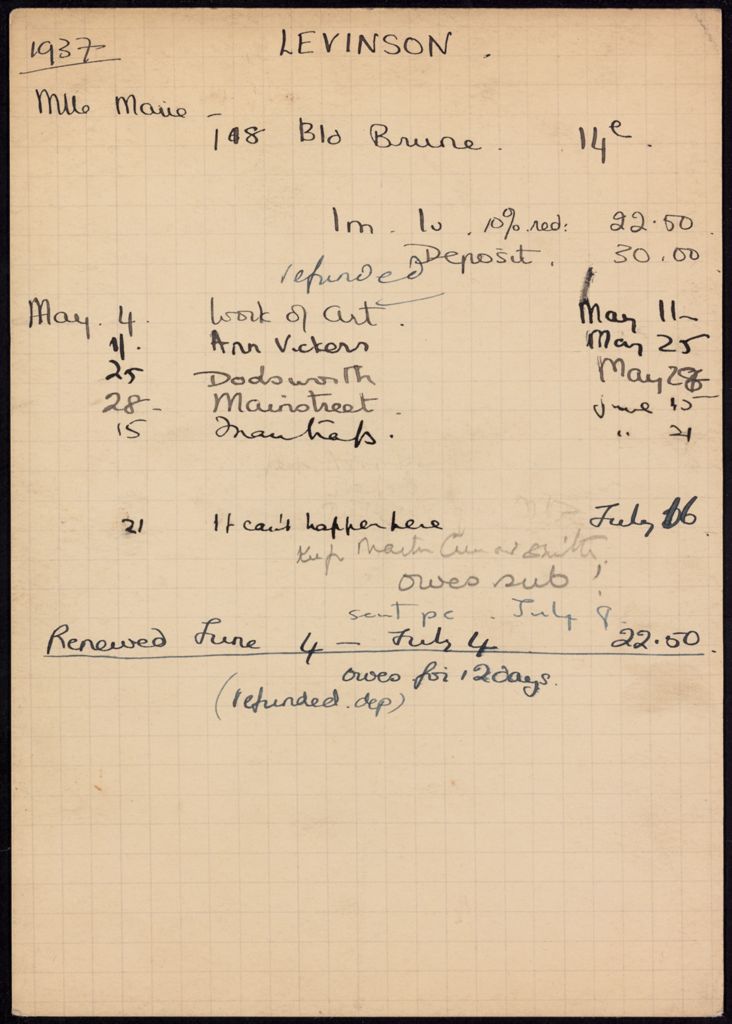 1937 LEVINSON.
Mlle Marie -
118 Bld Brune. 14e.
1m. 1v. 10% red: 22.50
Deposit. 30.00
refunded
May. 4. Work of Art. May 11-
11. Ann Vickers May 25
25 Dodsworth May 28
28- Mainstreet. June 15
15 Mantraps. " 21
21 It can't happen here July 16
Keep Martin
owes sub!
sent pc. July 8.
Renewed June 4 - July 4 22.50
owes for 12 days.
(refunded. dep)